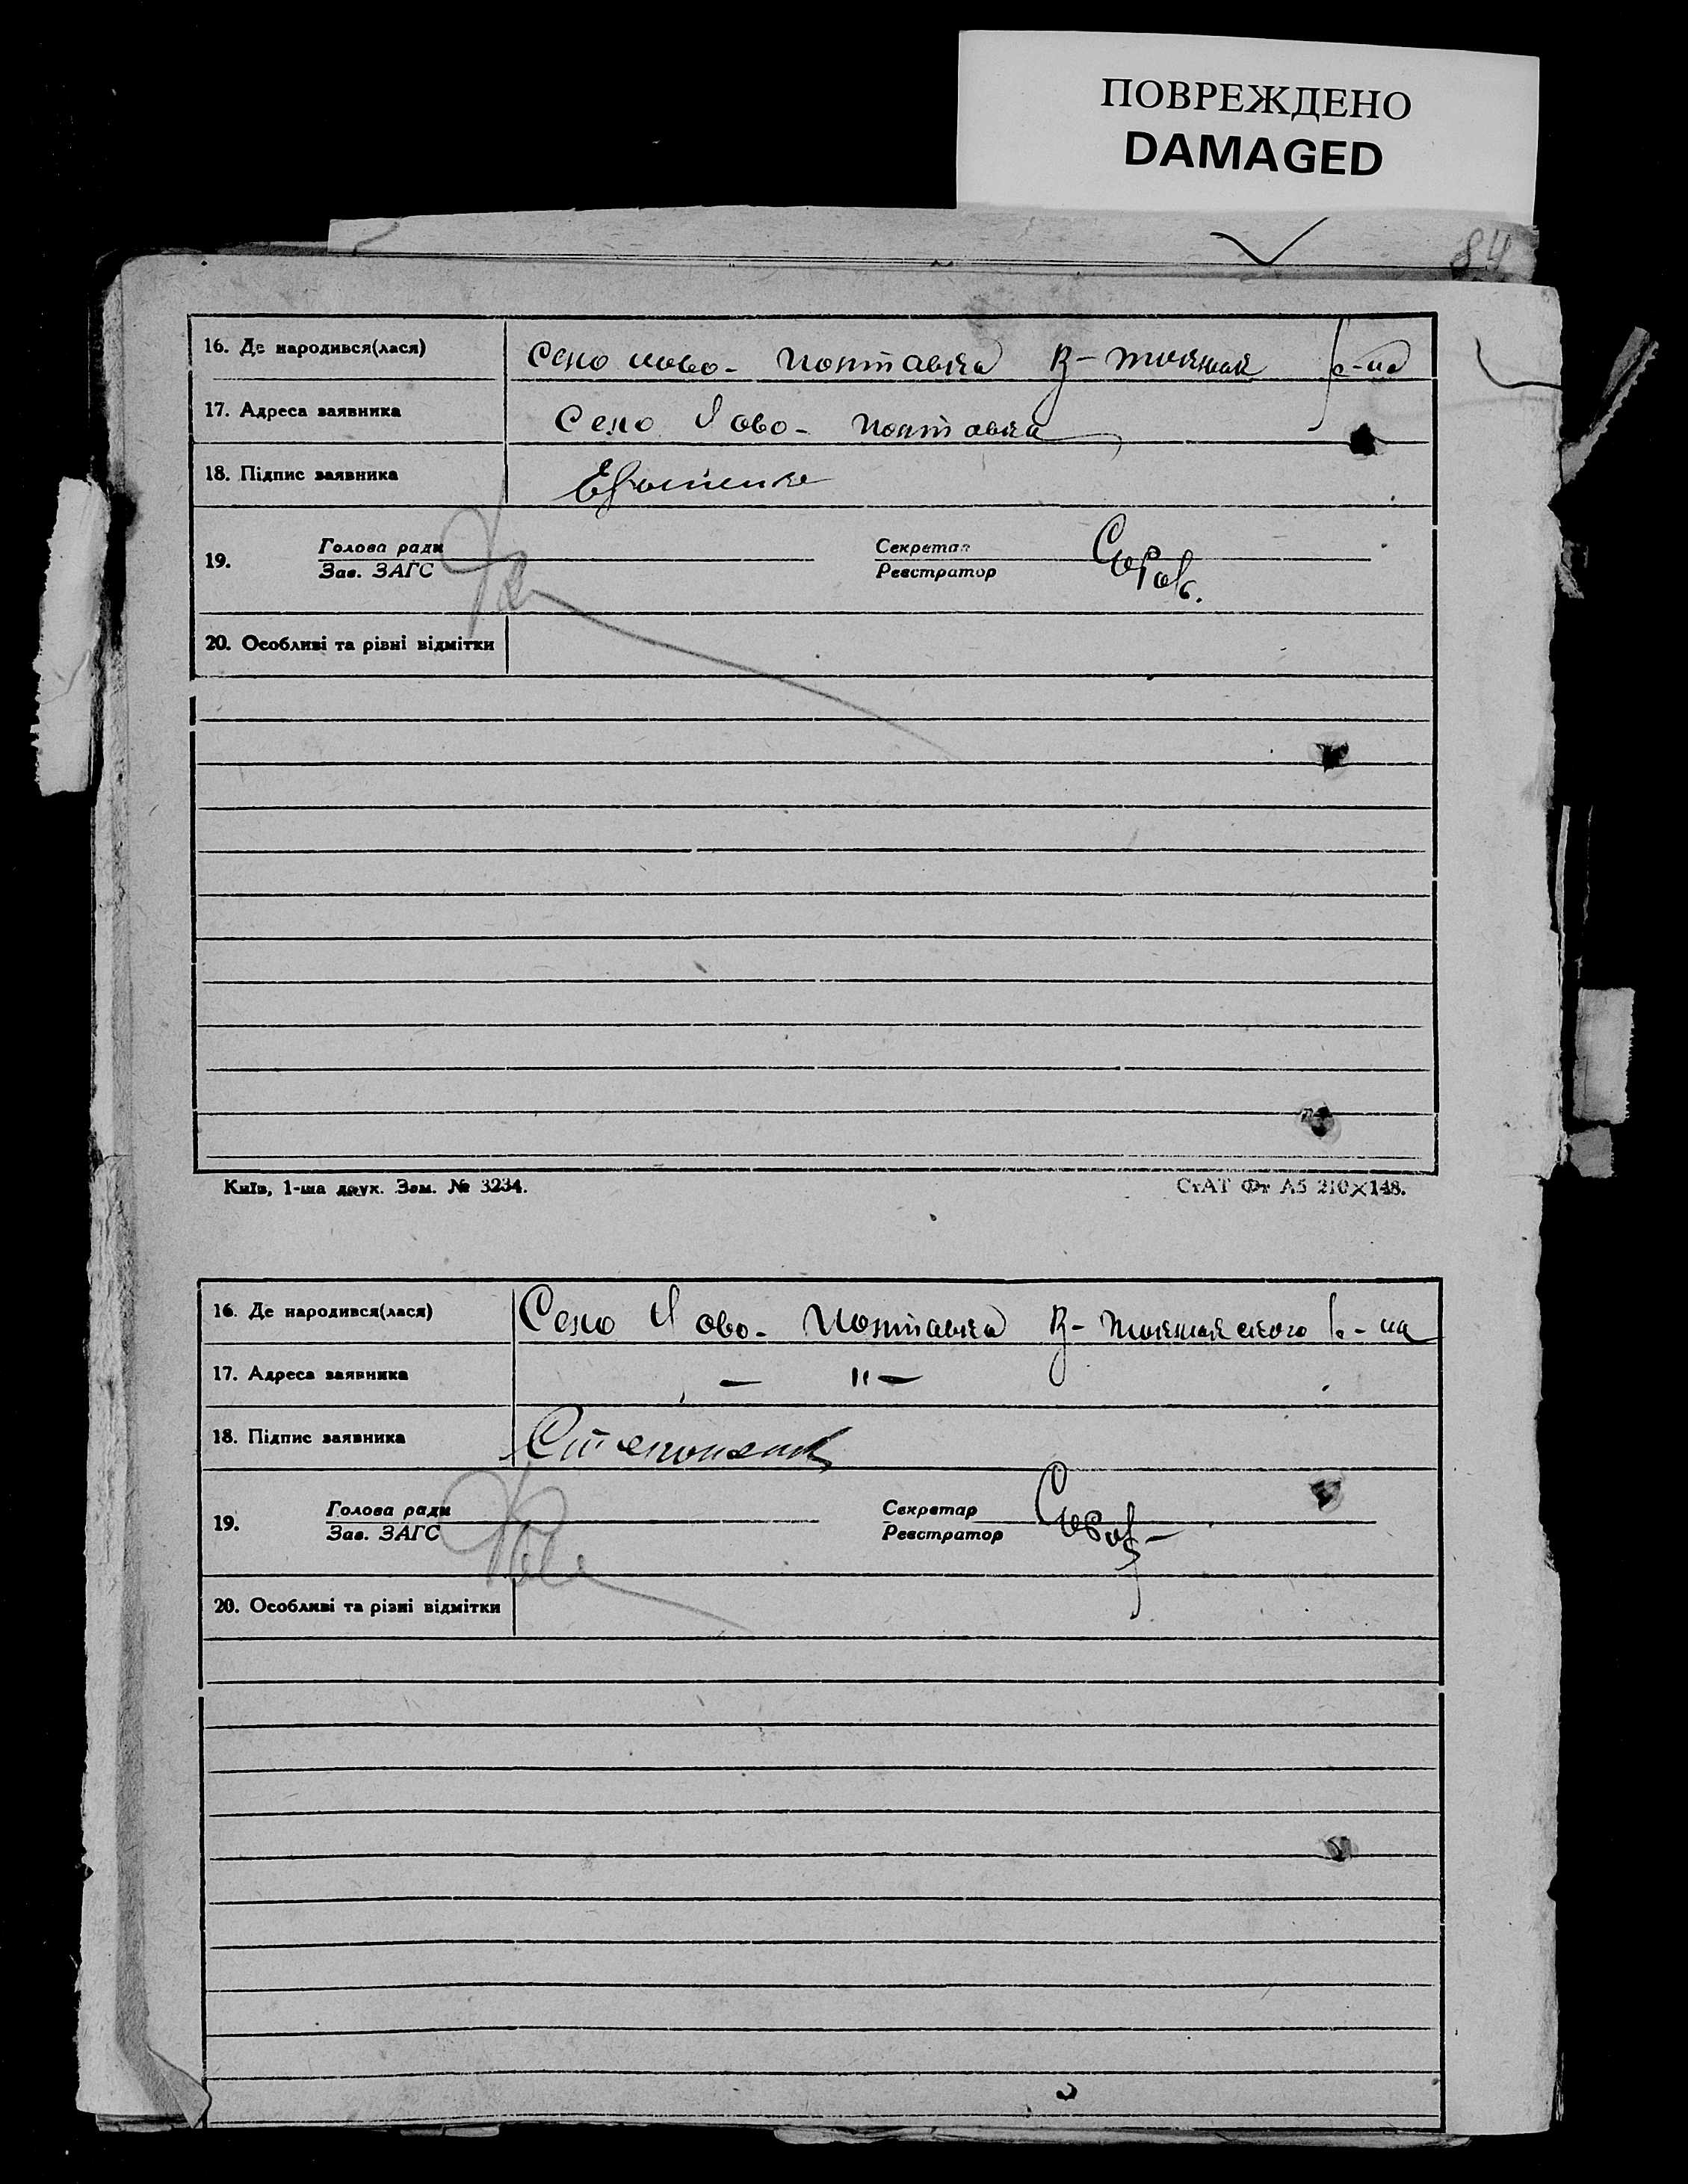 ПОВРЕЖДЕНО
DAMAGED
84
16. Де народився(лася) Село ново- Полтавка В- Токмак р-на
17. Адреса заявника Село Ново- Полтавка
18. Підпис заявника
19. Голова ради Секретар
Зав. ЗАГС Реєстратор
20. Особливі та різні відмітки
Київ, 1-ша друк. Зам. № 3234. СтАТ Фт А5 210×148.
16. Де народився(лася) Село Ново- Полтавка В- Токмакского р-на
17. Адреса заявника - " -
18. Підпис заявника
19. Голова ради Секретар
Зав. ЗАГС Реєстратор
20. Особливі та різні відмітки